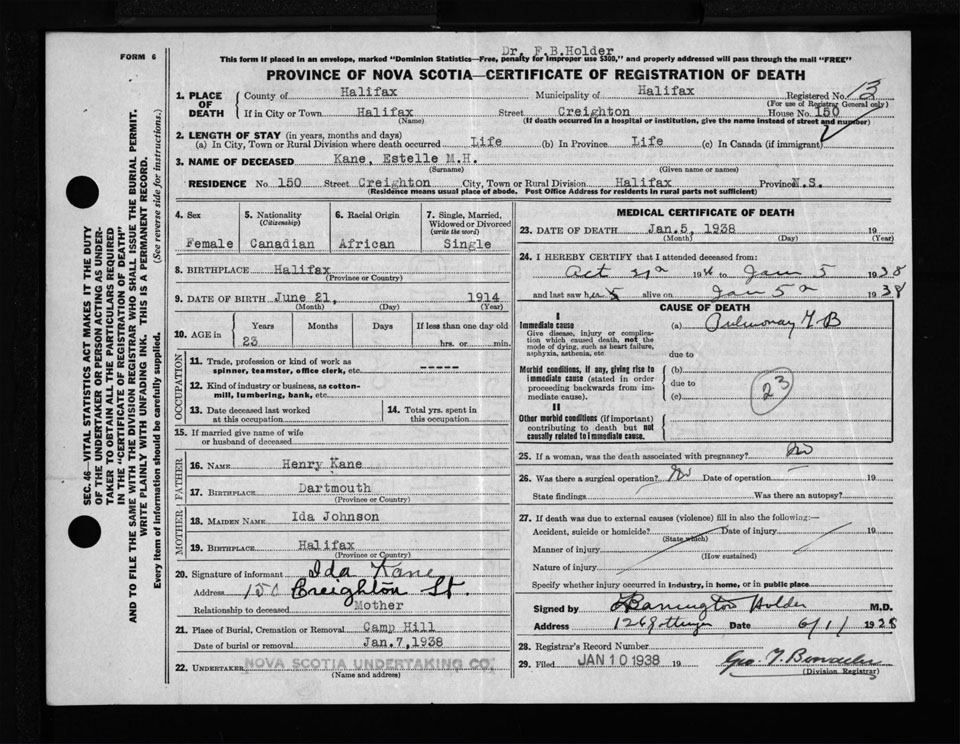 FORM 6
Dr. F.B.Holder
This form if placed in an envelope, marked "Dominion Statistics—Free, penalty for improper use $300," and properly addressed will pass through the mail "FREE"
PROVINCE OF NOVA SCOTIA—CERTIFICATE OF REGISTRATION OF DEATH
1. PLACE OF DEATH
County of Halifax Municipality of Halifax Registered No. 13
(For use of Registrar General only)
If in City or Town Halifax Street Creighton House No. 150
(Name) (If death occurred in a hospital or institution, give the name instead of street and number)
2. LENGTH OF STAY (in years, months and days)
(a) In City, Town or Rural Division where death occurred Life (b) In Province Life (c) In Canada (if immigrant)
3. NAME OF DECEASED Kane, Estelle M.H.
(Surname) (Given name or names)
RESIDENCE No 150 Street Creighton City, Town or Rural Division Halifax Province N.S.
(Residence means usual place of abode. Post Office Address for residents in rural parts not sufficient)
4. Sex Female
5. Nationality (Citizenship) Canadian
6. Racial Origin African
7. Single, Married, Widowed or Divorced (write the word) Single
8. BIRTHPLACE Halifax
(Province or Country)
9. DATE OF BIRTH June 21, 1914
(Month) (Day) (Year)
10. AGE in Years Months Days If less than one day old
23 hrs. or min.
OCCUPATION
11. Trade, profession or kind of work as spinner, teamster, office clerk, etc. -----
12. Kind of industry or business, as cotton-mill, lumbering, bank, etc.
13. Date deceased last worked at this occupation
14. Total yrs. spent in this occupation
15. If married give name of wife or husband of deceased
FATHER
16. NAME Henry Kane
17. BIRTHPLACE Dartmouth
(Province or Country)
MOTHER
18. MAIDEN NAME Ida Johnson
19. BIRTHPLACE Halifax
(Province or Country)
20. Signature of informant Ida Kane
Address 150 Creighton St.
Relationship to deceased Mother
21. Place of Burial, Cremation or Removal Camp Hill
Date of burial or removal Jan.7,1938
22. UNDERTAKER NOVA SCOTIA UNDERTAKING CO.
(Name and address)
MEDICAL CERTIFICATE OF DEATH
23. DATE OF DEATH Jan.5, 1938 19
(Month) (Day) (Year)
24. I HEREBY CERTIFY that I attended deceased from:
19 to Jan 5 1938
and last saw her alive on Jan 5 1938
CAUSE OF DEATH
I
Immediate cause (a) Pulmonary T B
Give disease, injury or complication which caused death, not the mode of dying, such as heart failure, asphyxia, asthenia, etc.
due to
Morbid conditions, if any, giving rise to immediate cause (stated in order proceeding backwards from immediate cause).
(b)
due to
(c)
23
II
Other morbid conditions (if important) contributing to death but not causally related to immediate cause.
25. If a woman, was the death associated with pregnancy? No
26. Was there a surgical operation? No Date of operation 19
State findings Was there an autopsy?
27. If death was due to external causes (violence) fill in also the following:—
Accident, suicide or homicide? Date of injury 19
(State which)
Manner of injury
(How sustained)
Nature of injury
Specify whether injury occurred in industry, in home, or in public place
Signed by Barrington Holder M.D.
Address Date 6/1/ 1938
28. Registrar's Record Number
29. Filed JAN 10 1938 19
(Division Registrar)
SEC. 46—VITAL STATISTICS ACT MAKES IT THE DUTY
OF THE UNDERTAKER OR PERSON ACTING AS UNDER-
TAKER TO OBTAIN ALL THE PARTICULARS REQUIRED
IN THE "CERTIFICATE OF REGISTRATION OF DEATH"
AND TO FILE THE SAME WITH THE DIVISION REGISTRAR WHO SHALL ISSUE THE BURIAL PERMIT.
WRITE PLAINLY WITH UNFADING INK. THIS IS A PERMANENT RECORD.
Every item of information should be carefully supplied. (See reverse side for instructions.)